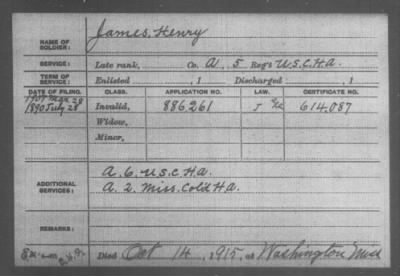 NAME OF SOLDIER: James, Henry
SERVICE: Late rank, Co. A, 5 Reg't U.S.C.H.A.
TERM OF SERVICE: Enlisted , 1 Discharged , 1
DATE OF FILING. CLASS. APPLICATION NO. LAW. CERTIFICATE NO.
1907 Mar 28
1890 July 28 Invalid, 886261 J 614,087
Widow,
Minor,
ADDITIONAL SERVICES: A. 6. U.S.C.H.A.
A. 2. Miss. Col'd H.A.
REMARKS:
Died Oct 14, 1915, at Washington Miss